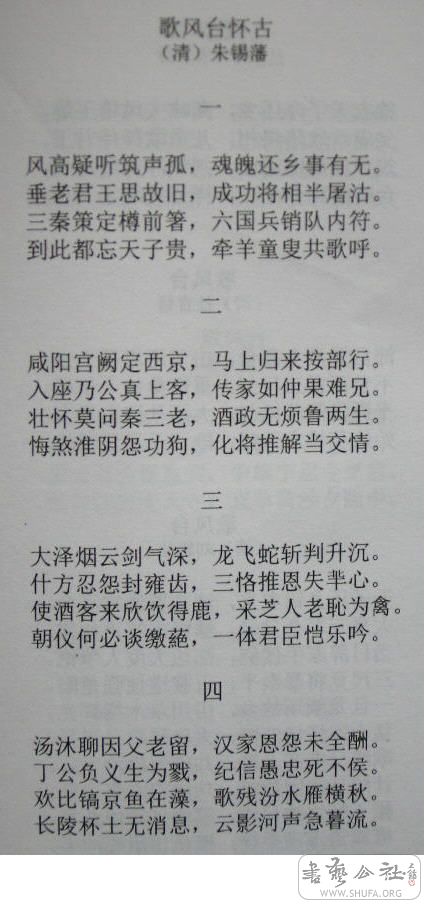 歌风台怀古
（清）朱锡藩
一
风高疑听筑声孤，魂魄还乡事有无。
垂老君王思故旧，成功将相半屠沽。
三秦策定樽前箸，六国兵销队内符。
到此都忘天子贵，牵羊童叟共歌呼。
二
咸阳宫阙定西京，马上归来按部行。
入座乃公真上客，传家如仲果难兄。
壮怀莫问秦三老，酒政无烦鲁两生。
悔煞淮阴怨功狗，化将推解当交情。
三
大泽烟云剑气深，龙飞蛇斩判升沉。
什方忍怨封雍齿，三恪推恩失芈心。
使酒客来欣饮得鹿，采芝人老耻为禽。
朝仪何必谈缴蕝，一体君臣恺乐吟。
四
汤沐聊因父老留，汉家恩怨未全酬。
丁公负义生为戮，纪信愚忠死不侯。
欢比镐京鱼在藻，歌残汾水雁横秋。
长陵杯土无消息，云影河声急暮流。
書藝公社
WWW.SHUFA.ORG